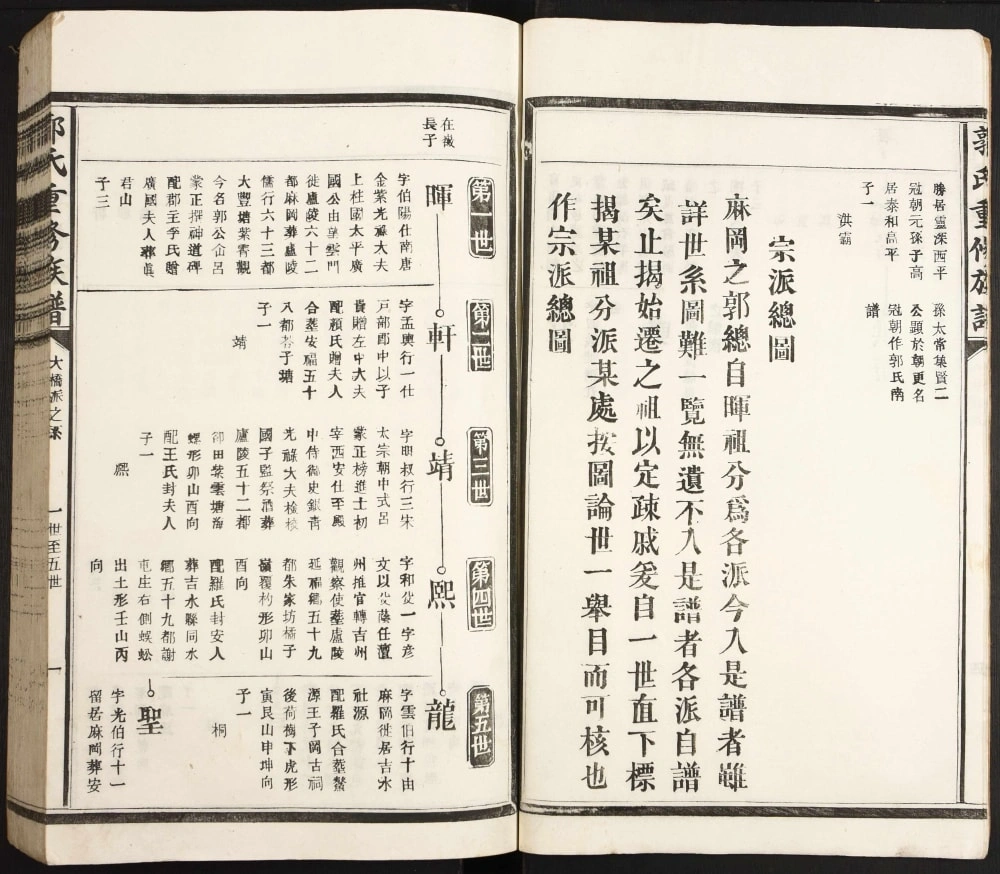 郭氏重修族譜
勝居靈深西平
冠朝元孫子高
居泰和高平
子一
洪霸
孫太常集賢二
公顯於朝更名
冠朝作郭氏南
譜
宗派總圖
麻岡之郭總自暉祖分爲各派今入是譜者雖
詳世系圖難一覽無遺不入是譜者各派自譜
矣止揭始遷之祖以定疎戚爰自一世直下標
揭某祖分派某處按圖論世一舉目而可核也
作宗派總圖
第一世
在徽
長子
暉
字伯陽仕南唐
金紫光祿大夫
上柱國太平廣
國公由皇雲門
徙廬陵六十二
都麻岡葬廬陵
儒行六十三都
大豐塘紫霄觀
今名郭公仚呂
蒙正撰神道碑
配郡主李氏贈
廣國夫人葬眞
君山
子三
第二世
軒
字孟輿行一仕
戸部郎中以子
貴贈左中大夫
配顏氏贈夫人
合塟安福五十
八都荅子塘
子一
靖
第三世
靖
字明叔行三宋
太宗朝中式呂
蒙正榜進士初
宰西安仕至殿
中侍御史銀青
光祿大夫檢校
國子監祭酒葬
廬陵五十二都
御田裴雲塘海
螺形卯山酉向
配王氏封夫人
子一
熙
第四世
熙
字和仪一字彦
文以父蔭任澶
州推官轉吉州
觀察使塟廬陵
延福鄉五十九
都朱家坊橋子
嶺覆杓形卯山
酉向
配羅氏封安人
葬吉水縣同水
鄉五十九都謝
屯庄右側蜈蚣
出土形壬山丙
向
第五世
龍
字雲伯行十由
麻岡徙居吉水
社源
配羅氏合塟鰲
源王子岡古祠
後荷梅下虎形
寅艮山申坤向
子一
桐
聖
字光伯行十一
留居麻岡葬安
郭氏重修族譜
大橋派之系
一世至五世
一